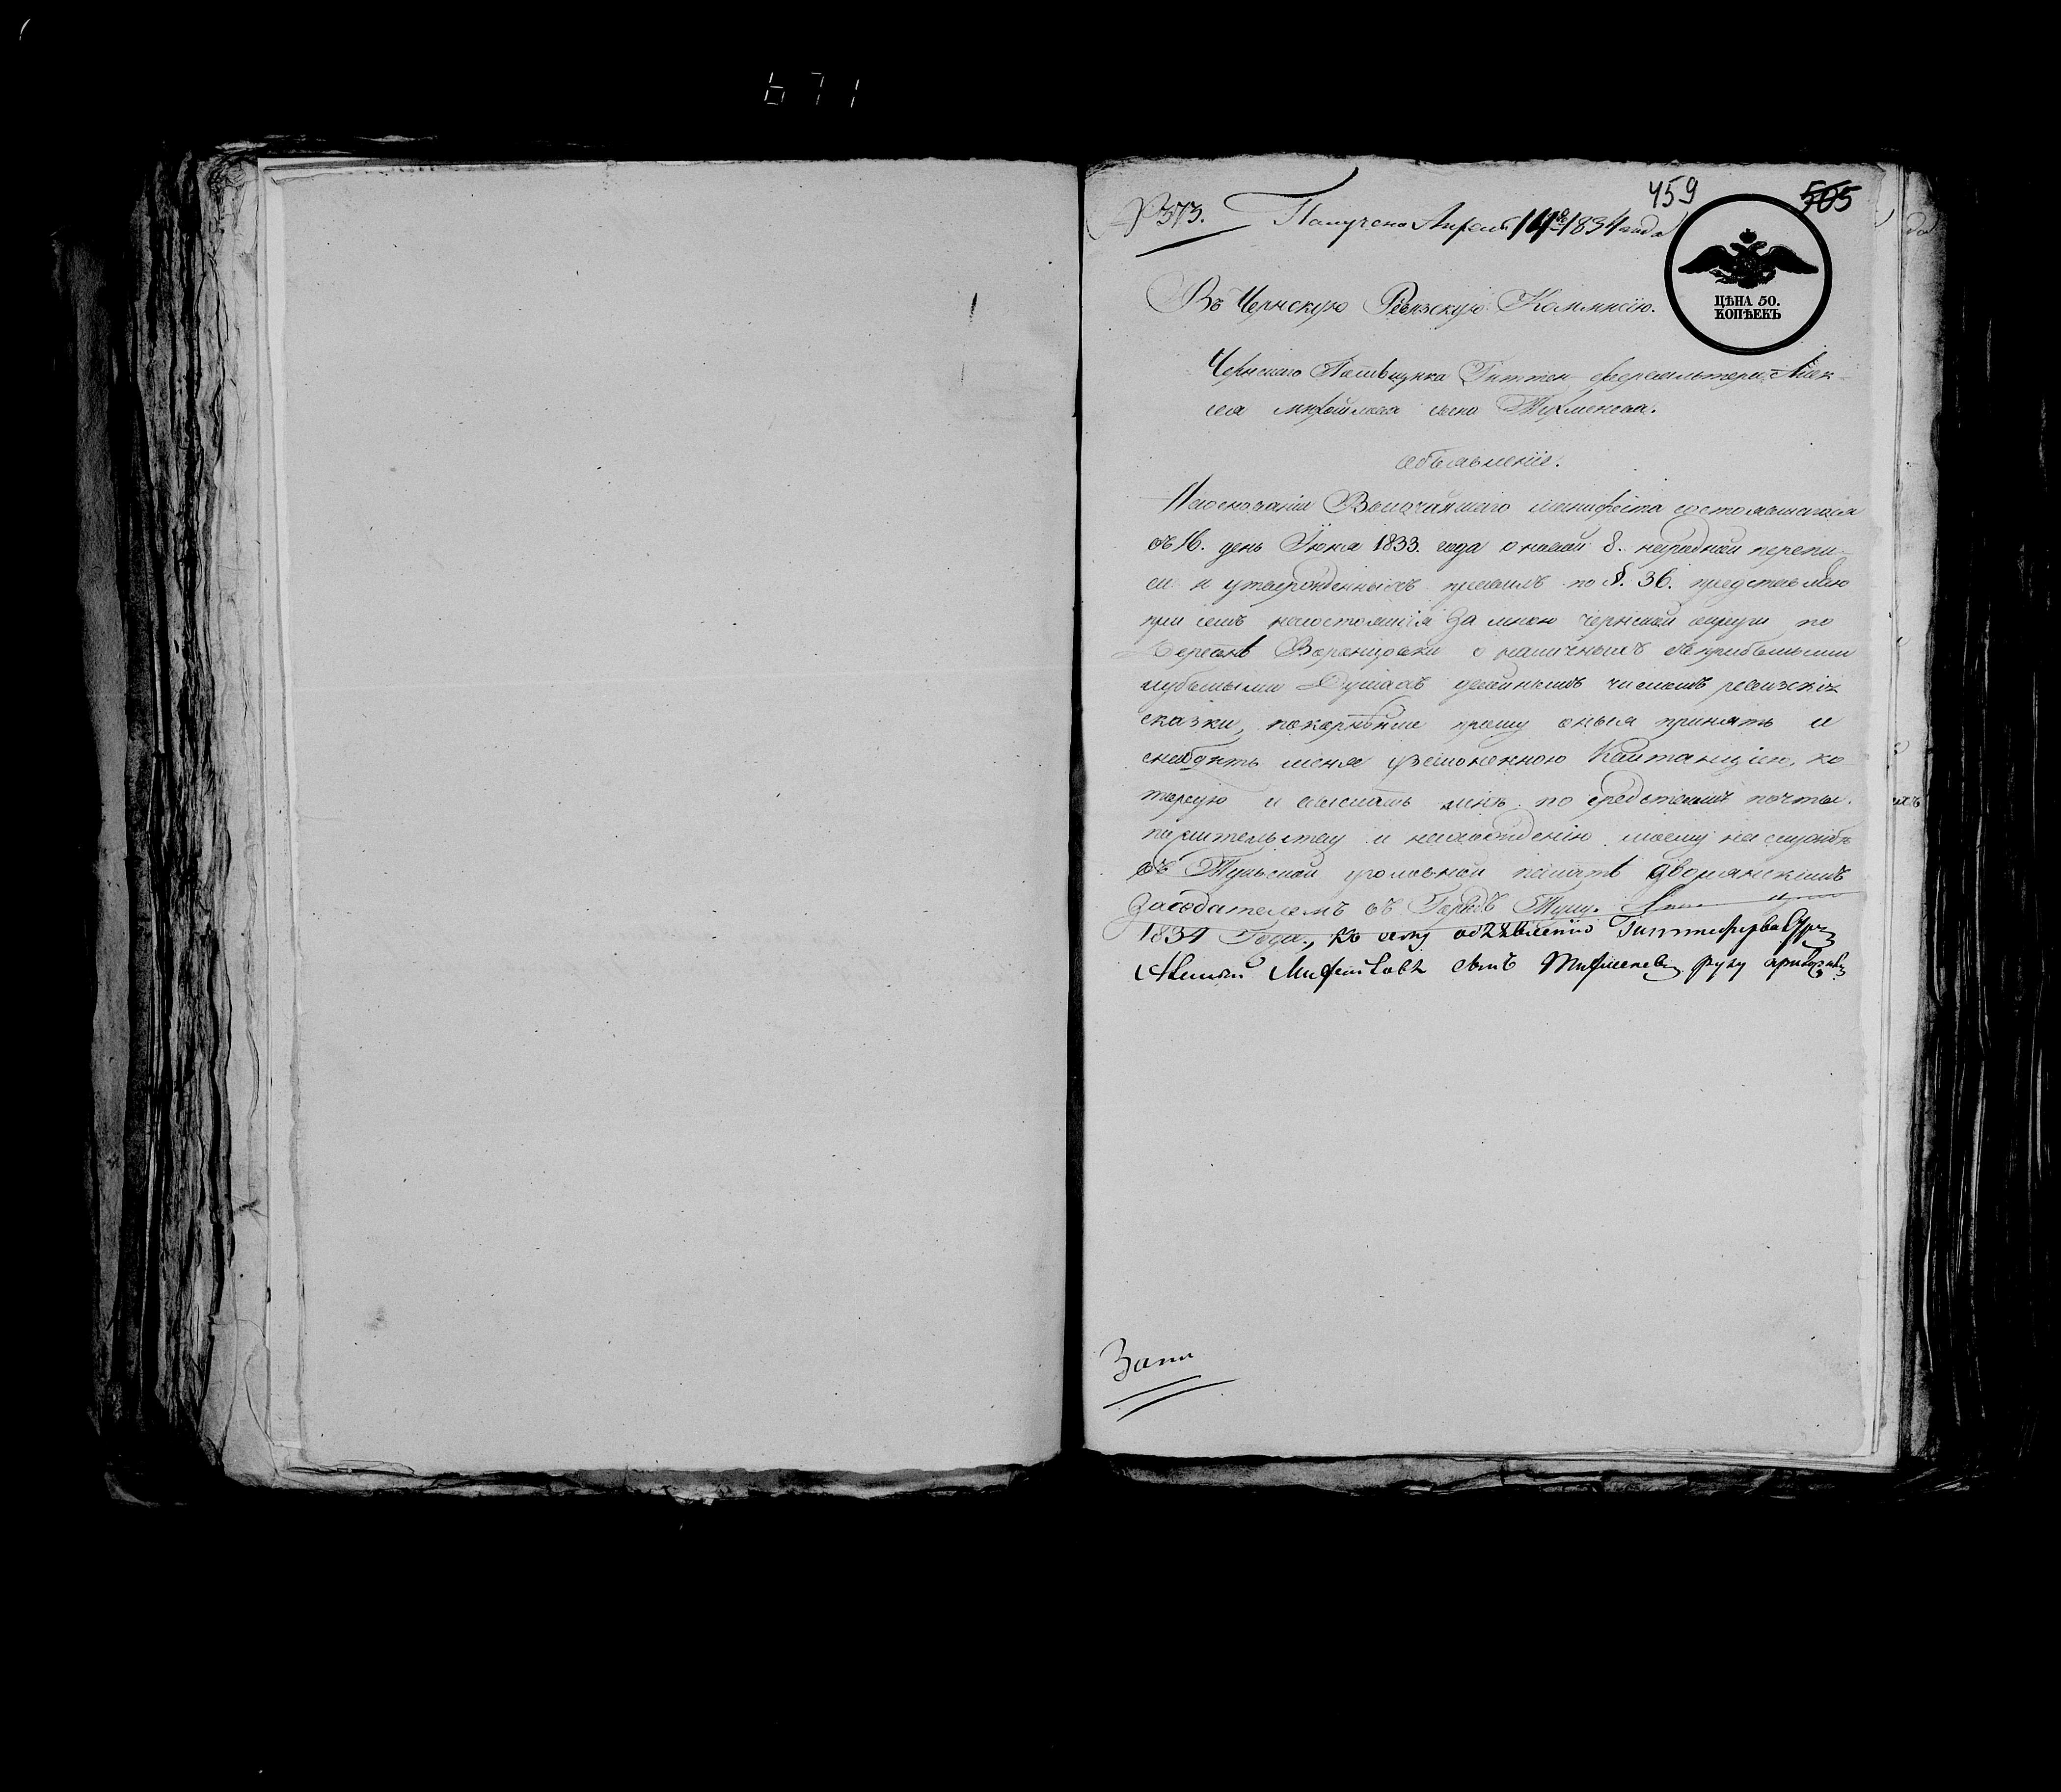 671
459
505
№ 373. Получено Апреля 14го 1834 года
ЦѢНА 50.
КОПѢЕКЪ
Въ Чернскую Ревизскую Коммисію.
Чернскаго Помѣщика Гиттен фервальтера Алек-
сея михайлова сына Тухменева.
объявленіе.
На основаніи Высочайшаго манифеста состоявшагося
въ 16. день Іюня 1833. года о новой 8. народной перепи-
си и утвержденныхъ правилъ по §. 36. представляю
при семъ на состоящія за мною чернской округи по
Деревнѣ Воронцовки о наличныхъ съ прибылыми
и убылыми Душахъ двойнымъ числомъ ревизскія
сказки, покорнѣйше прошу оныя принять и
снабдить меня узаконенною Квитанціею, ко-
торую и выслать мнѣ по средствомъ почты.
по жительству и нахожденію моему на службѣ
въ Тульской уголовной палатѣ дворянскимъ
Засѣдателемъ въ Городъ Тулу.
1834 Года., къ сему объявленію Гиттенфервалтеръ
Алексѣй Михайловъ сынъ Тухменевъ руку приложилъ